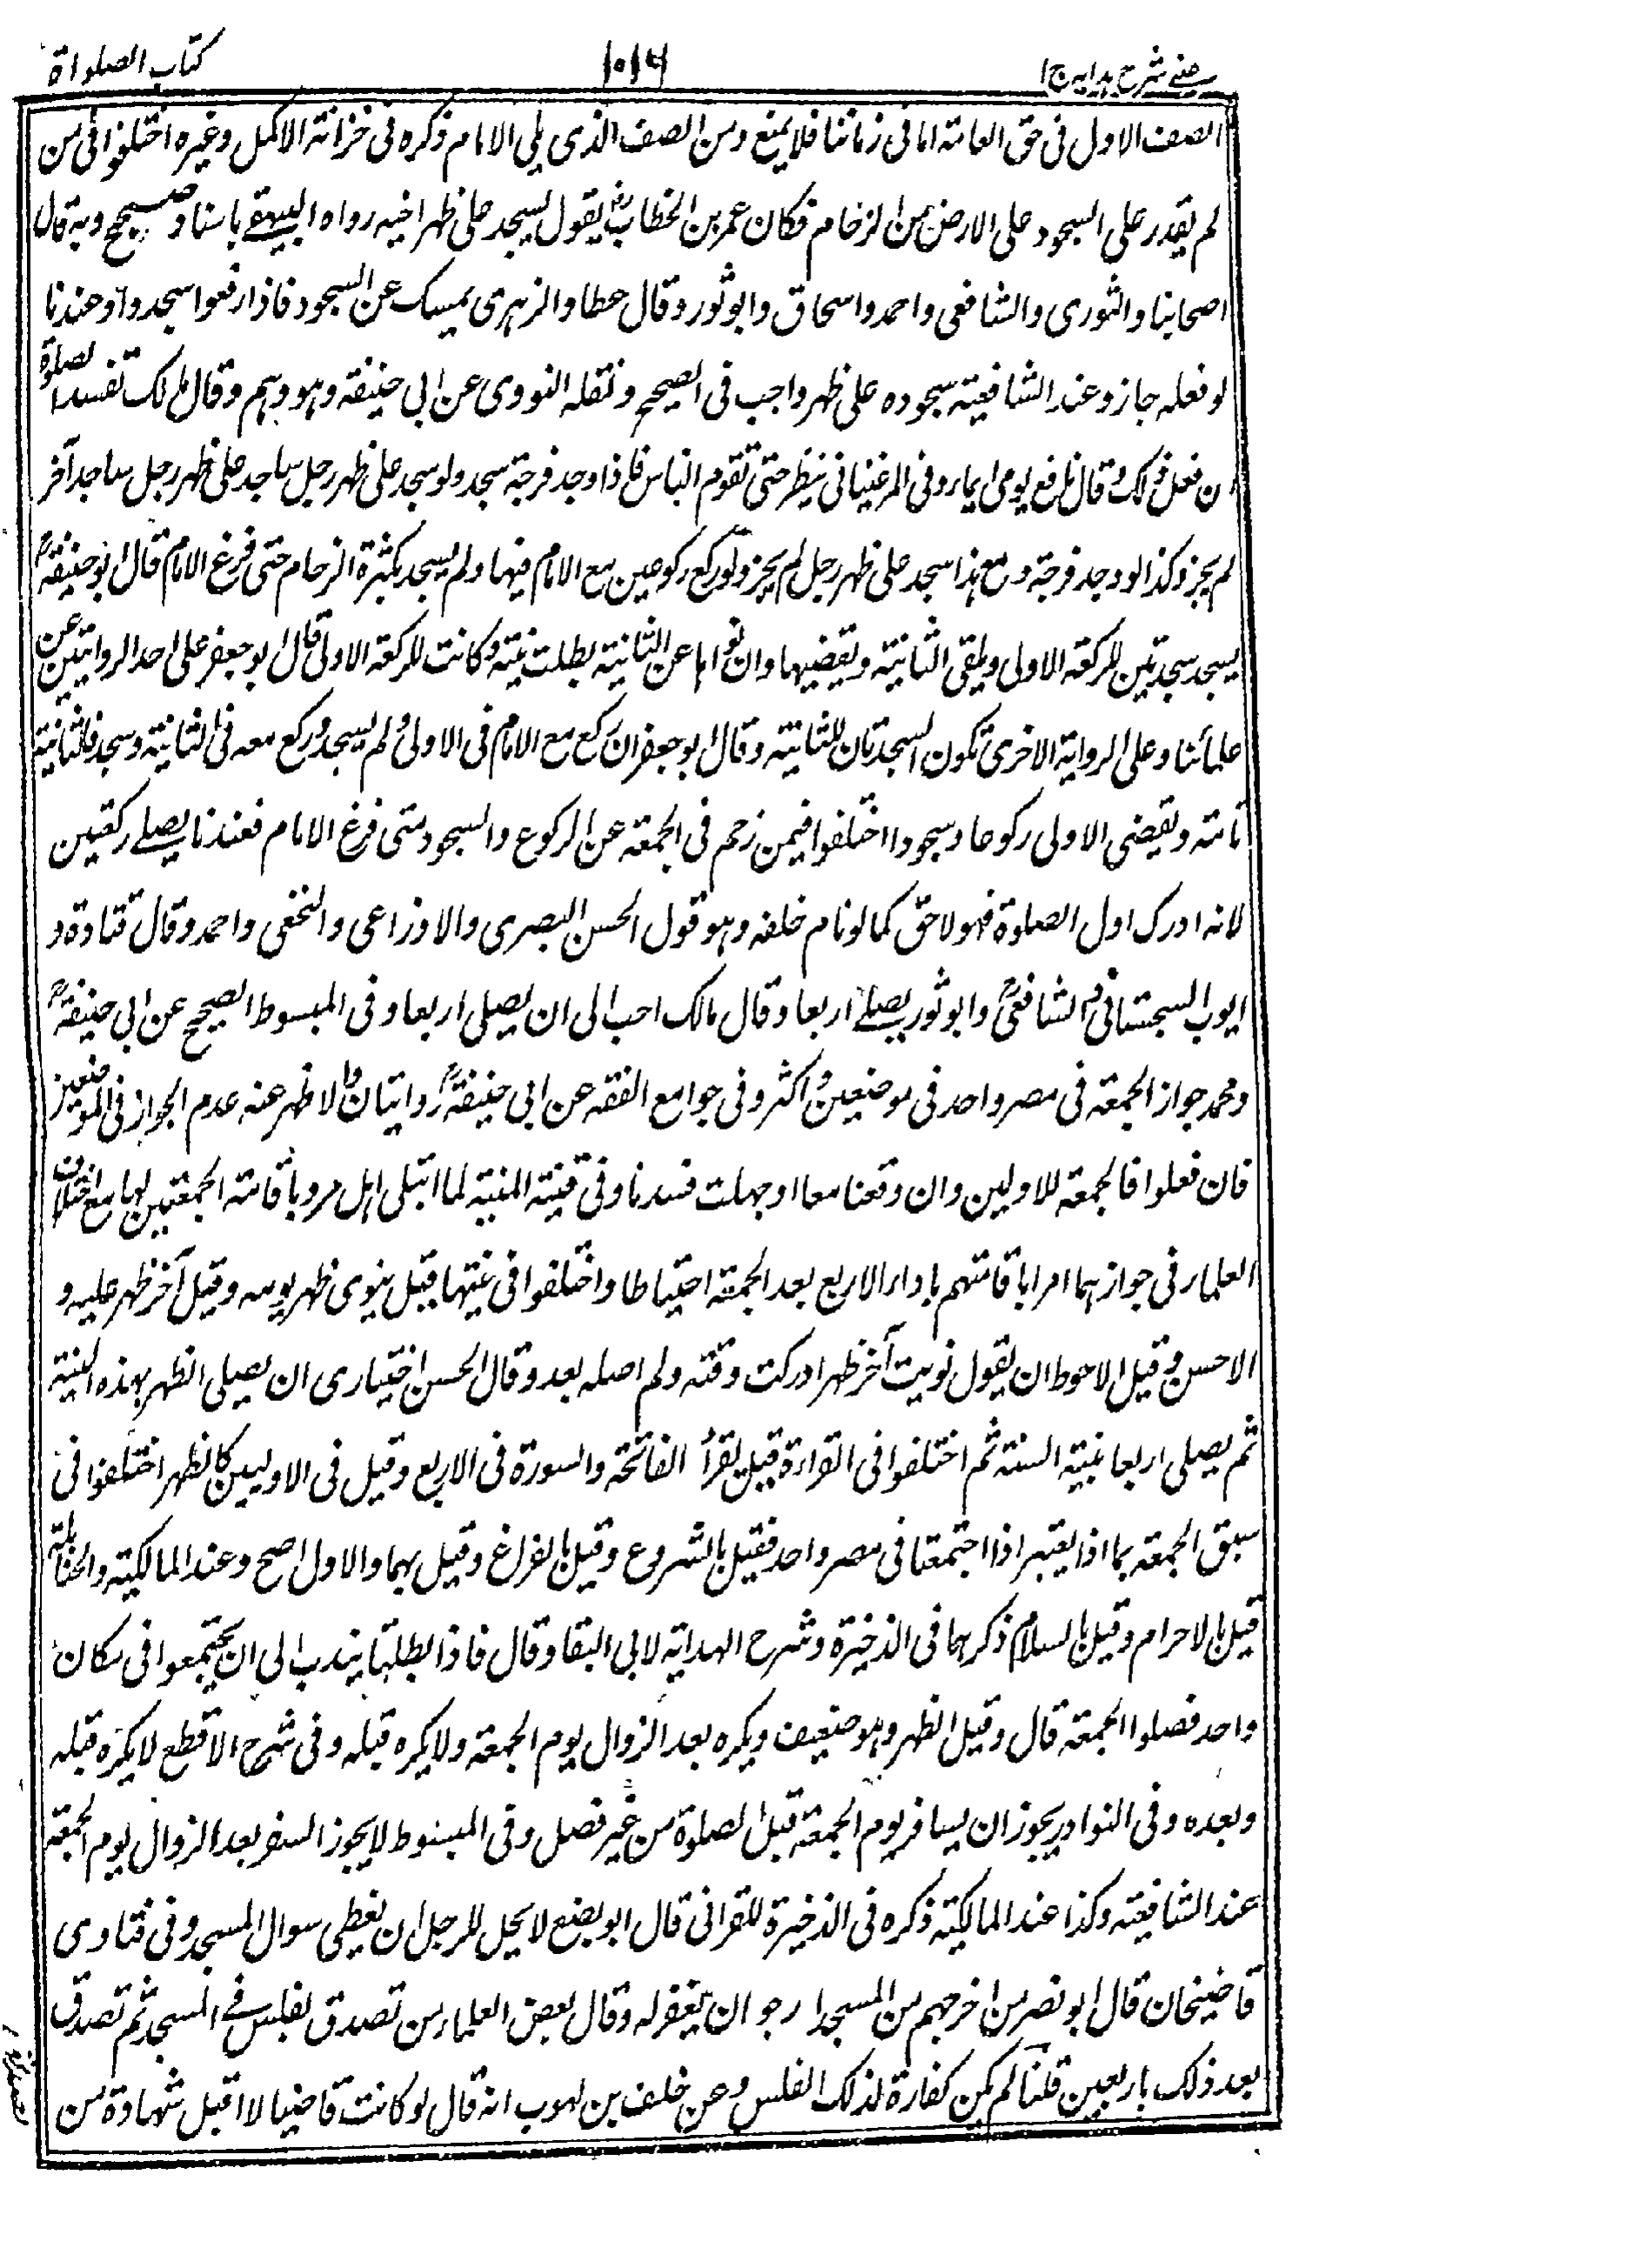 عینی شرح ہدایہ ج ا
۱۰۱۶
کتاب الصلواة
الصف الاول فی حق العامة اما فی زماننا فلا یمنع ومن الصف الذی یلی الامام ذکره فی خزانة الاکمل وغیره اختلفوا فی من
لم یقدر علی السجود علی الارض من الزحام فکان عمر بن الخطاب رض یقول یسجد علی ظهر اخیه رواه البیہقے باسناد صحیح وبه قال
اصحابنا والثوری والشافعی واحمد واسحاق وابو ثور وقال عطا والزہری یمسک عن السجود فاذا رفعوا سجدوا وعندنا
لو فعله جاز وعند الشافعیة سجوده علی ظهر واجب فی الصحیح ونقله النووی عن ابی حنیفة وہو وہم وقال مالک تفسد الصلوة
ان فعل ذلک وقال نافع یومی ایماء وفی المرغینانی ینظر حتی تقوم الناس فاذا وجد فرجة سجد ولو سجد علی ظهر رجل ساجد علی ظهر رجل ساجد آخر
لم یجز وکذا لو وجد فرجة ومع ہذا سجد علی ظهر رجل لم یجز ولو رکع رکوعین مع الامام فیہما ولم یسجد بکثرة الزحام حتی فرغ الامام قال ابو حنیفة رح
یسجد سجدتین للرکعة الاولی ویلقی الثانیة ویقضیہا وان نواہا عن الثانیة بطلت نیته وکانت للرکعة الاولی قال ابو جعفر علی احد الروایتین عن
علمائنا وعلی الروایة الاخری تکون السجدتان للثانیة وقال ابو جعفر ان رکع مع الامام فی الاولی ولم یسجد ورکع معه فی الثانیة وسجد فالثانیة
تامة ویقضی الاولی رکوعا وسجودا اختلفوا فیمن زحم فی الجمعة عن الرکوع والسجود متی فرغ الامام فعندنا یصلے رکعتین
لانه ادرک اول الصلوة فہو لاحق کما لو نام خلفه وہو قول الحسن البصری والاوزاعی والنخعی واحمد وقال قتادة و
ایوب السجستانی والشافعی رح وابو ثور یصلے اربعا وقال مالک احب الی ان یصلی اربعا وفی المبسوط الصحیح عن ابی حنیفة رح
ومحمد جواز الجمعة فی مصر واحد فی موضعین واکثر وفی جوامع الفقه عن ابی حنیفة رح روایتان والاظهر عنه عدم الجواز فی الموضعین
فان فعلوا فالجمعة للاولین وان وقعتا معا او جہلت فسدتا وفی قنیة المنیة لما ابتلی اہل مرو باقامة الجمعتین بہا مع اختلاف
العلماء فی جوازہما امر اباقامتہم باداء الاربع بعد الجمعة احتیاطا واختلفوا فی نیتہا قیل ینوی ظهر یومه وقیل آخر ظهر علیه و
الاحسن وقیل الاحوط ان یقول نویت آخر ظهر ادرکت وقته ولم اصله بعد وقال الحسن اختیاری ان یصلی الظهر بہذه النیة
ثم یصلی اربعا بنیة السنة ثم اختلفوا فی القراءة قیل یقرأ الفاتحة والسورة فی الاربع وقیل فی الاولیین کالظهر اختلفوا فی
سبق الجمعة بما ذا یعتبر اذا اجتمعتا فی مصر واحد فقیل بالشروع وقیل بالفراغ وقیل بہما والاول اصح وعند المالکیة والحنابلة
قیل بالاحرام وقیل بالسلام ذکرہما فی الذخیرة وشرح الہدایة لابی البقا وقال فاذا بطلتا یندب الی ان یجتمعوا فی مکان
واحد فصلوا الجمعة قال وقیل الظهر وہو ضعیف ویکره بعد الزوال یوم الجمعة ولا یکره قبله وفی شرح الاقطع لا یکره قبله
وبعده وفی النوادر یجوز ان یسافر یوم الجمعة قبل الصلوة من غیر فصل وفی المبسوط لا یجوز السفر بعد الزوال یوم الجمعة
عند الشافعیة وکذا عند المالکیة ذکره فی الذخیرة للقرافی قال ابو بضع لا یحل للرجل ان یعطی سوال المسجد وفی فتاوی
قاضیخان قال ابو نصر من اخرجہم من المسجد ارجو ان یغفر له وقال بعض العلماء من تصدق بفلس فے المسجد ثم تصدق
بعد ذلک باربعین فلسا لم یکن کفارة لذلک الفلس وعن خلف بن ایوب انه قال لو کانت قاضیا لا اقبل شہادة من